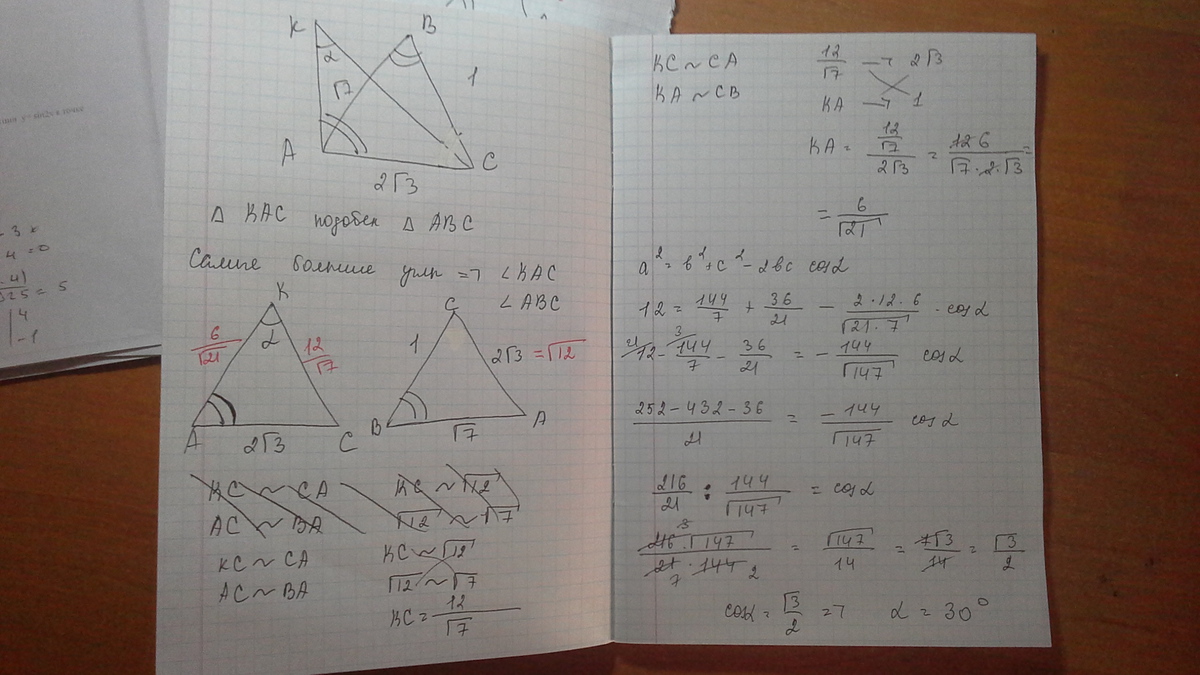 K
B
α
√7
1
A
C
2√3
Δ KAC подобен Δ ABC
Самые большие углы => ∠KAC
∠ABC
K
6/√21
α
12/√7
A
2√3
C
C
1
2√3 = √12
B
√7
A
KC ~ CA
AC ~ BA
KC ~ √12
√12 ~ √7
KC ~ CA
AC ~ BA
KC ~ √12
√12 ~ √7
KC = 12/√7
KC ~ CA
KA ~ CB
12/√7 → 2√3
KA → 1
KA = (12/√7)/(2√3) = 12 6/(√7 · 2 · √3) =
= 6/√21
a² = b² + c² - 2bc cosα
12 = 144/7 + 36/21 - (2·12·6)/√(21·7) · cosα
21/ 12 - 3/ 144/7 - 36/21 = - 144/√147 cosα
(252 - 432 - 36)/21 = - 144/√147 cosα
216/21 : 144/√147 = cosα
(216 3 · √147)/(21 7 · 144 2) = √147/14 = 7√3/14 = √3/2
cosα = √3/2 => α = 30°
3 x
4 = 0
325 = 5
4
-1